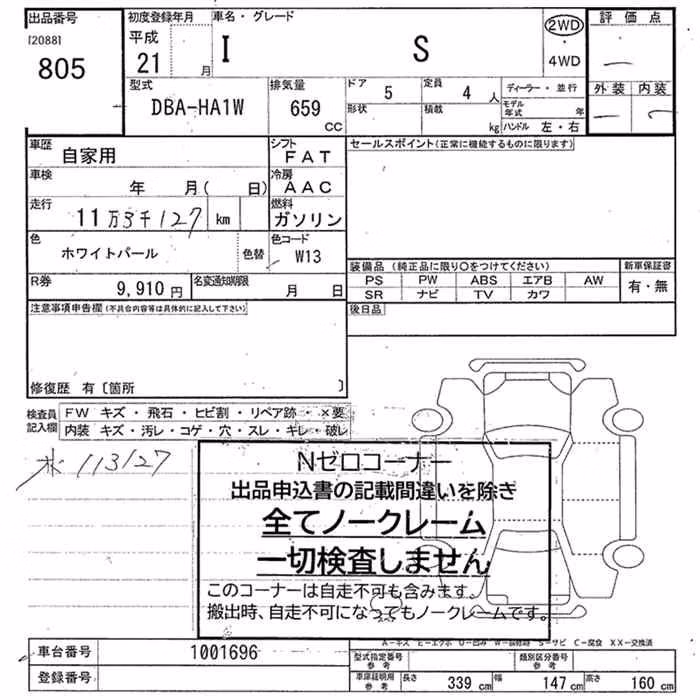 出品番号 初度登録年月 車名・グレード 2WD 評価点
[2088] 平成
805 21 月 I S 4WD 一
型式 排気量 ドア 5 定員 4 人 ディーラー・並行 外装 内装
DBA-HA1W 659 CC 形状 積載 kg モデル年式 年
ハンドル 左・右
車歴 自家用 シフト FAT セールスポイント(正常に機能するものに限ります)
車検 年 月( 日) 冷房 AAC
走行 11万3千127 km 燃料 ガソリン
色 ホワイトパール 色替 色コード W13
R券 9,910円 名変通知期限 月 日
装備品 (純正品に限り○をつけてください) 新車保証書
PS PW ABS エアB AW 有・無
SR ナビ TV カワ
注意事項申告欄(不具合内容等は具体的に記入して下さい) 後日品
修復歴 有〔箇所 〕
検査員 FW キズ・飛石・ヒビ割・リペア跡・×要
記入欄 内装 キズ・汚レ・コゲ・穴・スレ・キレ・破レ
113127
Nゼロコーナー
出品申込書の記載間違いを除き
全てノークレーム
一切検査しません
このコーナーは自走不可も含みます。
搬出時、自走不可になってもノークレームです。
車台番号 1001696 型式指定番号 参考 類別区分番号 参考
登録番号 車庫証明用 参考 長さ 339 cm 幅 147 cm 高さ 160 cm